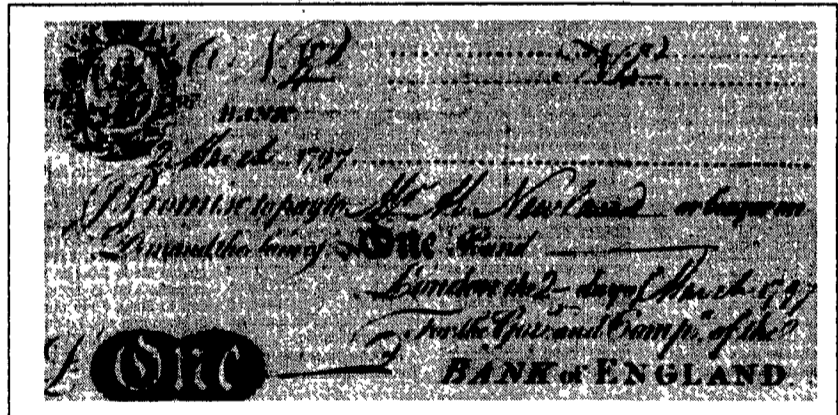 BANK
2 March 1797
I Promise to pay to Mr. A. Newland or bearer on
Demand the Sum of One Pound
London the 2 day of March 1797
For the Gov.r and Comp.a of the
£ One
BANK of ENGLAND.